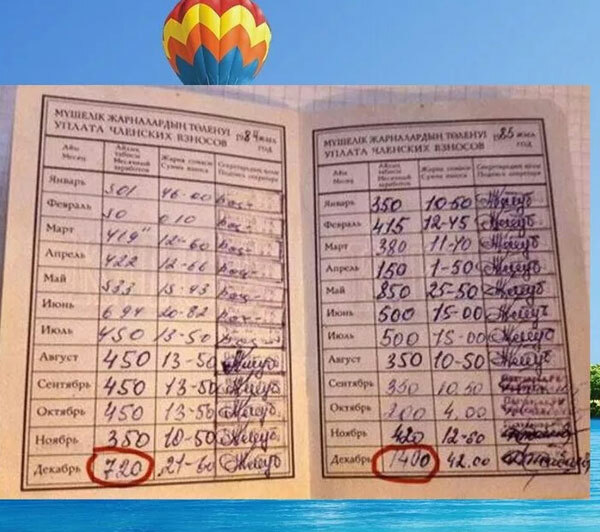 МҮШЕЛІК ЖАРНАЛАРДЫҢ ТӨЛЕНУІ 1984 жыл
УПЛАТА ЧЛЕНСКИХ ВЗНОСОВ год
Айы Айлық табысы Жарна сомасы Секретардың қолы
Месяц Месячный заработок Сумма взноса Подпись секретаря
Январь 501 46-00
Февраль 10 0.10
Март 419 12-60
Апрель 422 12-66
Май 533 15-43
Июнь 694 20-82
Июль 450 13-50
Август 450 13-50
Сентябрь 450 13-50
Октябрь 450 13-50
Ноябрь 350 10-50
Декабрь 720 21-60
МҮШЕЛІК ЖАРНАЛАРДЫҢ ТӨЛЕНУІ 1985 жыл
УПЛАТА ЧЛЕНСКИХ ВЗНОСОВ год
Айы Айлық табысы Жарна сомасы Секретардың қолы
Месяц Месячный заработок Сумма взноса Подпись секретаря
Январь 350 10-50
Февраль 415 12-45
Март 380 11-40
Апрель 150 1-50
Май 850 25-50
Июнь 500 15-00
Июль 500 15-00
Август 350 10-50
Сентябрь 350 10.50
Октябрь 200 4.00
Ноябрь 420 12-60
Декабрь 1400 42.00